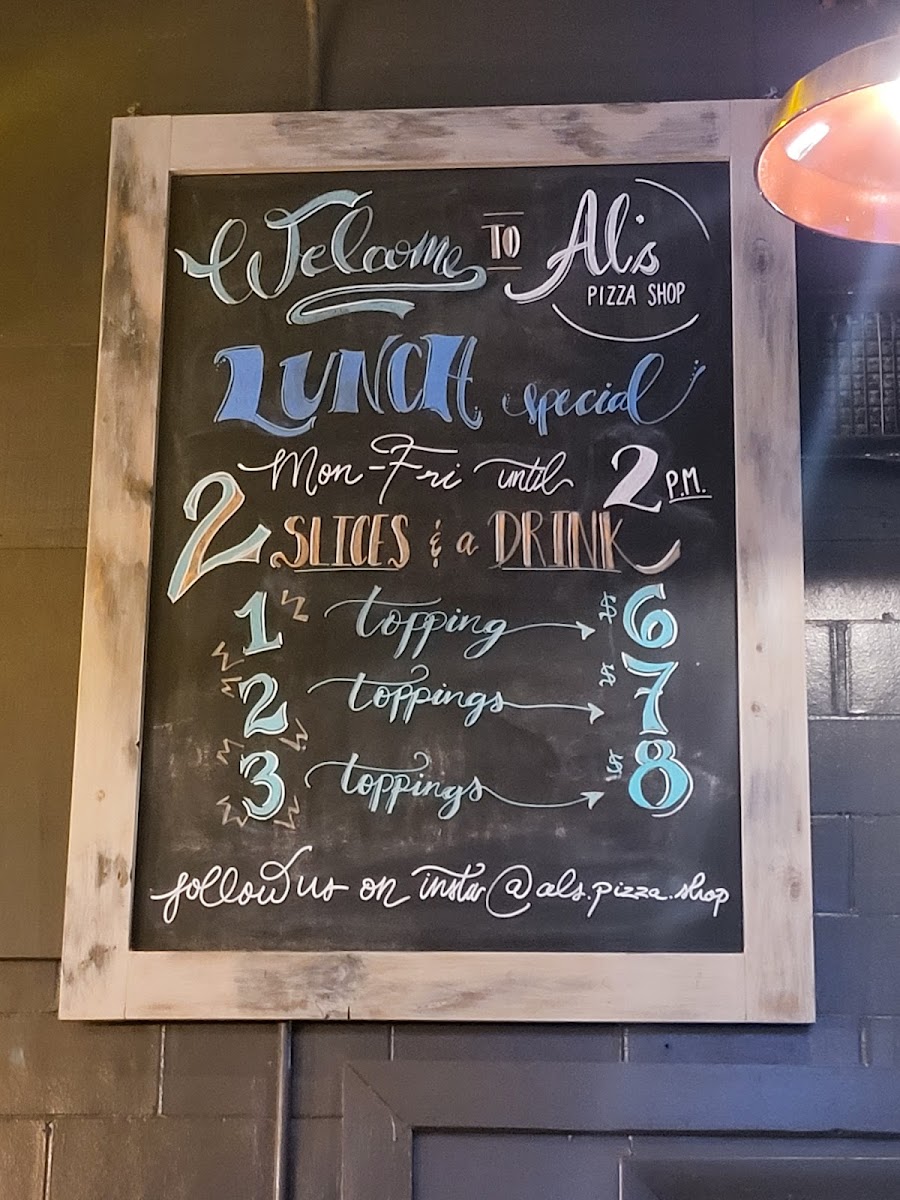 Welcome TO Al's
PIZZA SHOP
LUNCH special
Mon-Fri until 2 P.M.
2 SLICES & a DRINK
1 topping $6
2 toppings $7
3 toppings $8
follow us on insta @als.pizza.shop